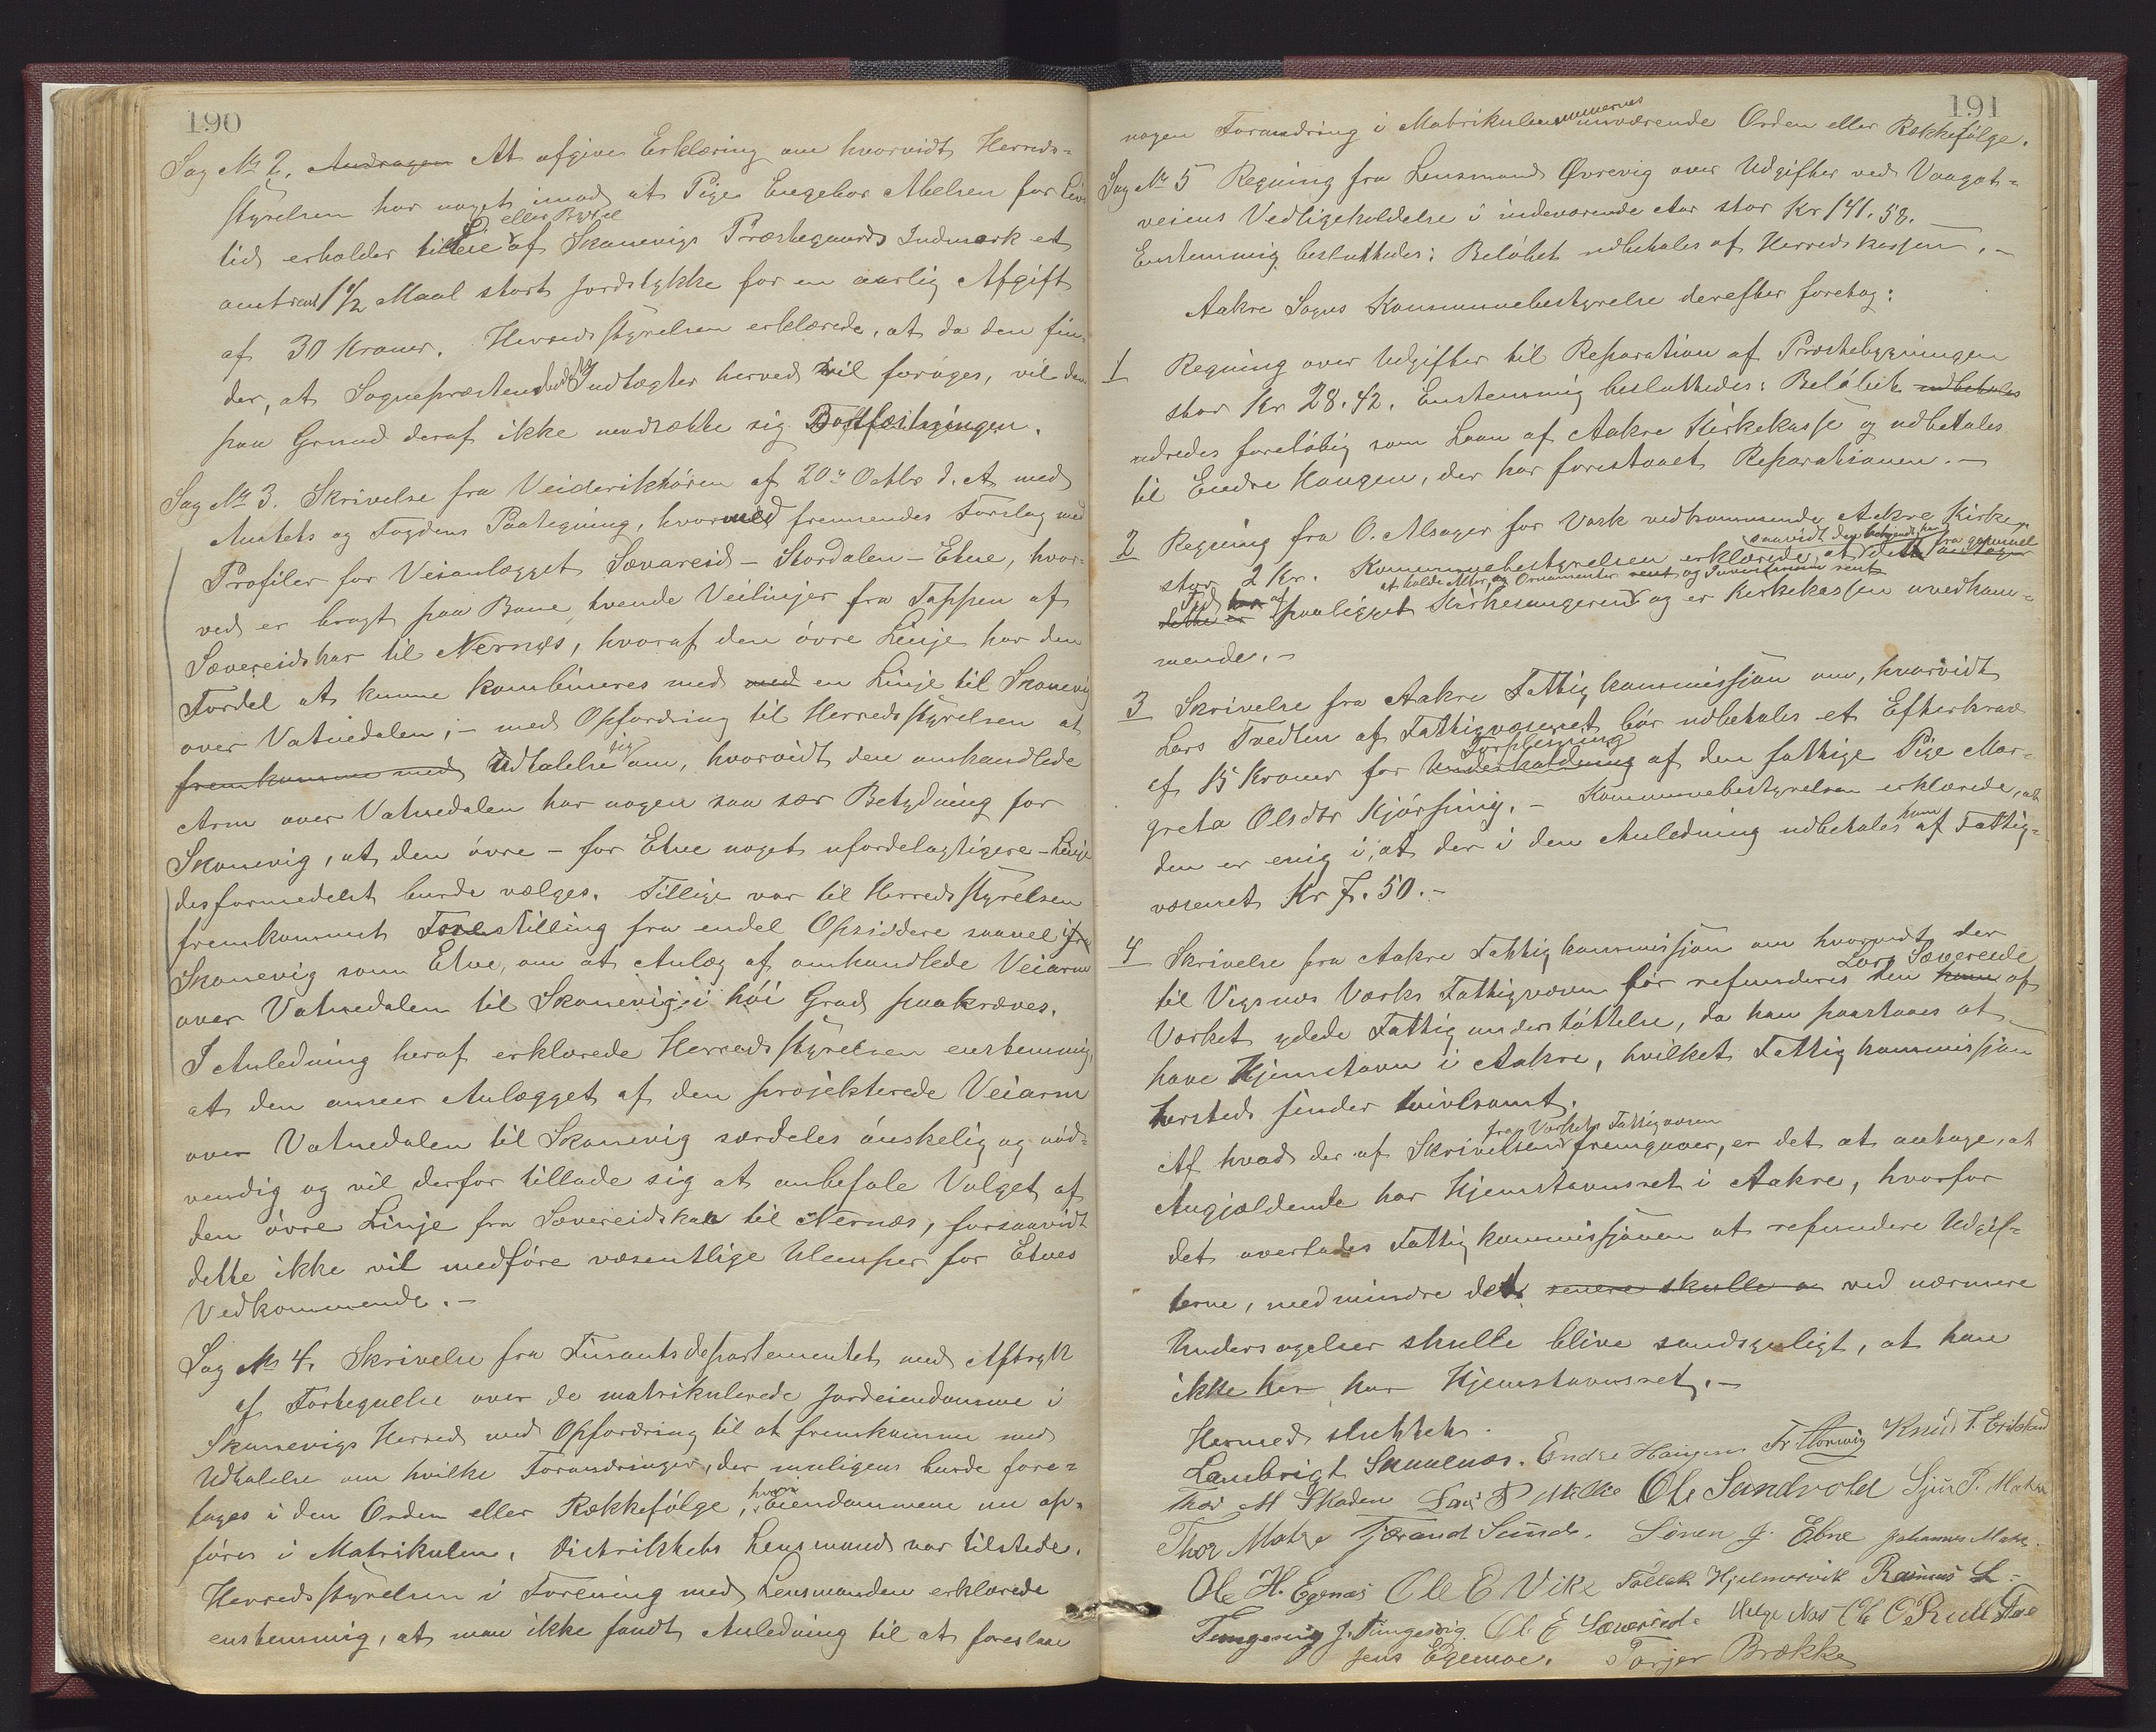 190
Sag No 2. Andragen At afgive Erklæring om hvorvidt Herreds-
styrelsen har noget imod at Pige Engebor Abelsen for Livs
eller Byxel
tid erholder til Leie af Skonevigs Præstegaards Indmark et
omtrent 1 1/2 Maal stort Jordstykke for en aarlig Afgift
af 30 Kroner. Herredsstyrelsen erklærede, at da den fin-
der, at Sognepræstens Indtægter herved vil forøges, vil den
paa Grund deraf ikke modsætte sig Bortfæstningen.
Sag No 3. Skrivelse fra Veidirektøren af 20de Octbr d. A med
Amtets og Fogdens Paategning, hvormed fremsendes Forslag med
Profiler for Veianlægget Sævareid - Stordalen - Etne, hvor-
ved er bragt paa Bane tvende Veilinjer fra Toppen af
Sævereidskar til Nernæs, hvoraf den øvre Linje har den
Fordel at kunne kombineres med med en Linje til Skonevig
over Vatnedalen; - med Opfordring til Herredsstyrelsen at
fremkomme med Udtalelse sig om, hvorvidt den omhandlede
Arm over Vatnedalen har nogen saa sær Betydning for
Skonevig, at den øvre - for Etne noget ufordelagtigere - Linje
desformedelst burde vælges. Tillige var til Herredsstyrelsen
fremkommet Forestilling fra endel Opsiddere saavel ifra
Skonevig som Etne, om at Anlæg af omhandlede Veiarm
over Vatnedalen til Skonevig i høi Grad paakræves.
I Anledning heraf erklærede Herredsstyrelsen enstemmig,
at den anseer Anlægget af den projekterede Veiarm
over Vatnedalen til Skonevig særdeles ønskelig og nød-
vendig og vil derfor tillade sig at anbefale Valget af
den øvre Linje fra Sævereidskar til Nernæs, forsaavidt
dette ikke vil medføre væsentlige Ulemper for Etnes
Vedkommende. -
Sag No 4. Skrivelse fra Finantsdepartementet med Aftryk
af Fortegnelse over de matrikulerede Jordeiendomme i
Skonevigs Herred med Opfordring til at fremkomme med
Udtalelse om hvilke Forandringer, der muligens burde fore-
tages i den Orden eller Rækkefølge, hvori Eiendommene nu op-
føres i Matrikulen. Distriktets Lensmand var tilstede.
Herredsstyrelsen i Forening med Lensmanden erklærede
enstemmig, at man ikke fandt Anledning til at foreslaa
191
nogen Forandring i Matrikulens nuværende Orden eller Rækkefølge.
Sag No 5 Regning fra Lensmand Øvrevig over Udgifter ved Vaagat-
veiens Vedligeholdelse i indeværende Aar stor Kr 141.58.
Enstemmig besluttedes: Beløbet udbetales af Herredskassen. -
Aakre Sogns Kommunebestyrelse derefter foretog:
1 Regning over Udgifter til Reparation af Præstebygningen
stor Kr 28.42. Enstemmig besluttedes: Beløbet udbetales
udredes foreløbig som Laan af Aakre Kirkekasse og udbetales
til Endre Haugen, der har forestaaet Reparationen. -
2 Regning fra O. Alsager for Vask vedkommende Aakre Kirke
saavidt den bekjendt har fra gammel
stor 2 Kr. Kommunebestyrelsen erklærede, at dett antager
at holde Alter, og Ornamenter rent og Inventarium rent
Tid har af
dette er paaligget Kirkesangeren og er Kirkekassen uvedkom-
mende. -
3 Skrivelse fra Aakre Fattigkommission om, hvorvidt
Lars Tvedten af Fattigvæsenet bør udbetales et Efterkrav
Forpleining
af 15 Kroner for Underholdning af den fattige Pige Mar-
greta Olsdtr Kjørsvig. - Kommunebestyrelsen erklærede, at
den er enig i, at der i den Anledning udbetales ham af Fattig-
væsenet Kr 7.50. -
4 Skrivelse fra Aakre Fattigkommission om hvorvidt der
Lars Sævereide
til Vigsnes Værks Fattigvæsen bør refunderes den ham af
Værket ydede Fattigunderstøttelse, da han paastaaes at
have Hjemstavn i Aakre, hvilket Fattigkommission
hersteds finder tvivlsomt.
fra Værkets Fattigvæsen
Af hvad der af Skrivelsen fremgaaer, er det at antage, at
Angjældende har Hjemstavnsret i Aakre, hvorfor
det overlades Fattigkommissionen at refundere Udgif-
terne, medmindre det senere skulle a ved nærmere
Undersøgelser skulle blive sandsynligt, at han
ikke her har Hjemstavnsret. -
Hermed sluttet.
Lambrigt Sunnenæs. Endre Haugen Knud T. Eritsland
Thor M Skaden Lars P Millie Ole Sandvold Sjur P. Matre
Thor Matre Tjærand Sunde. Sønen J. Ebne Johannes Matre.
Ole H. Egenæs Ole E Vike Tollak Hjelmervik Rasmus L-
Tungesvig J. Tungesvig. Ole E Sævereide Helge Næs Ole O
Jens Egemoe. Torjer Brække